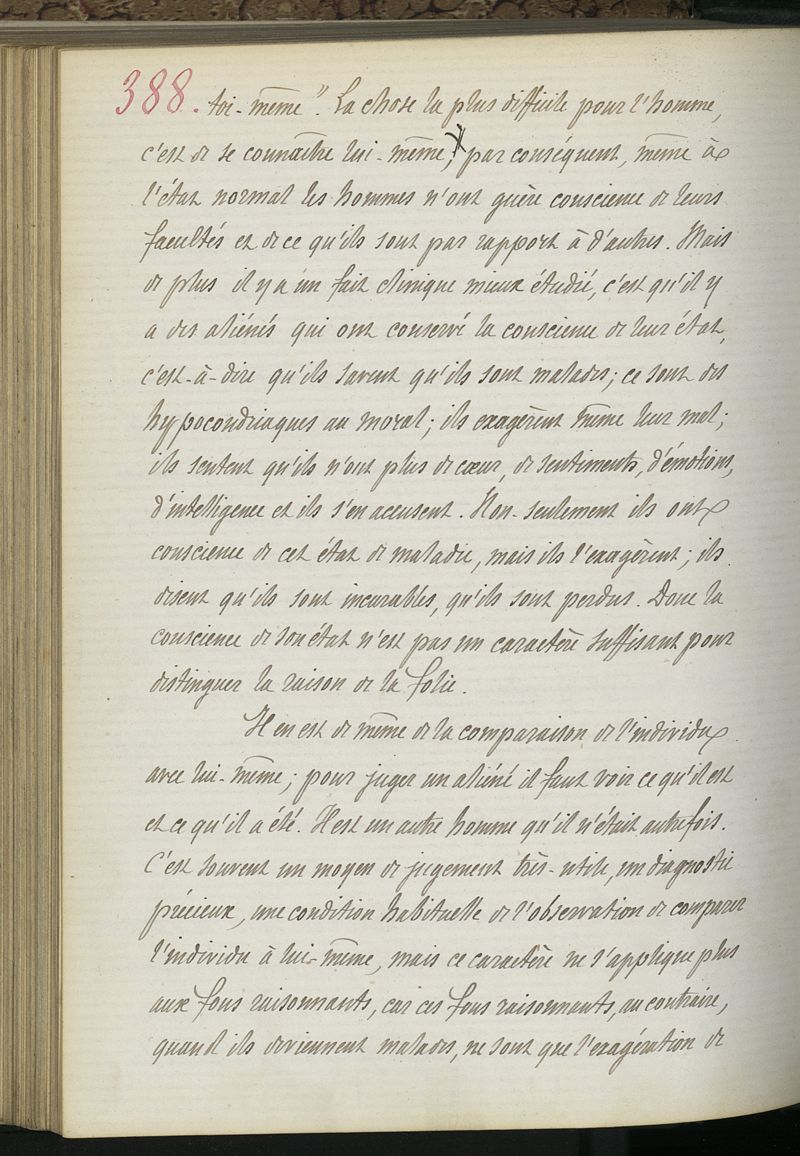 388. toi-même". La chose la plus difficile pour l'homme,
c'est de se connaître lui-même; par conséquent, même à
l'état normal les hommes n'ont guère conscience de leurs
facultés et de ce qu'ils sont par rapport à d'autres. Mais
de plus il y a un fait clinique mieux étudié, c'est qu'il y
a des aliénés qui ont conservé la conscience de leur état,
c'est-à-dire qu'ils savent qu'ils sont malades; ce sont des
hypocondriaques au moral; ils exagèrent même leur mal;
ils sentent qu'ils n'ont plus de cœur, de sentiments, d'émotions,
d'intelligence et ils s'en accusent. Non-seulement ils ont
conscience de cet état de maladie, mais ils l'exagèrent; ils
disent qu'ils sont incurables, qu'ils sont perdus. Donc la
conscience de son état n'est pas un caractère suffisant pour
distinguer la raison de la folie.
Il en est de même de la comparaison de l'individu
avec lui-même; pour juger un aliéné il faut voir ce qu'il est
et ce qu'il a été. Il est un autre homme qu'il n'était autrefois.
C'est souvent un moyen de jugement très-utile, un diagnostic
précieux, une condition habituelle de l'observation de comparer
l'individu à lui-même, mais ce caractère ne s'applique plus
aux fous raisonnants, car ces fous raisonnants, au contraire,
quand ils deviennent malades, ne sont que l'exagération de